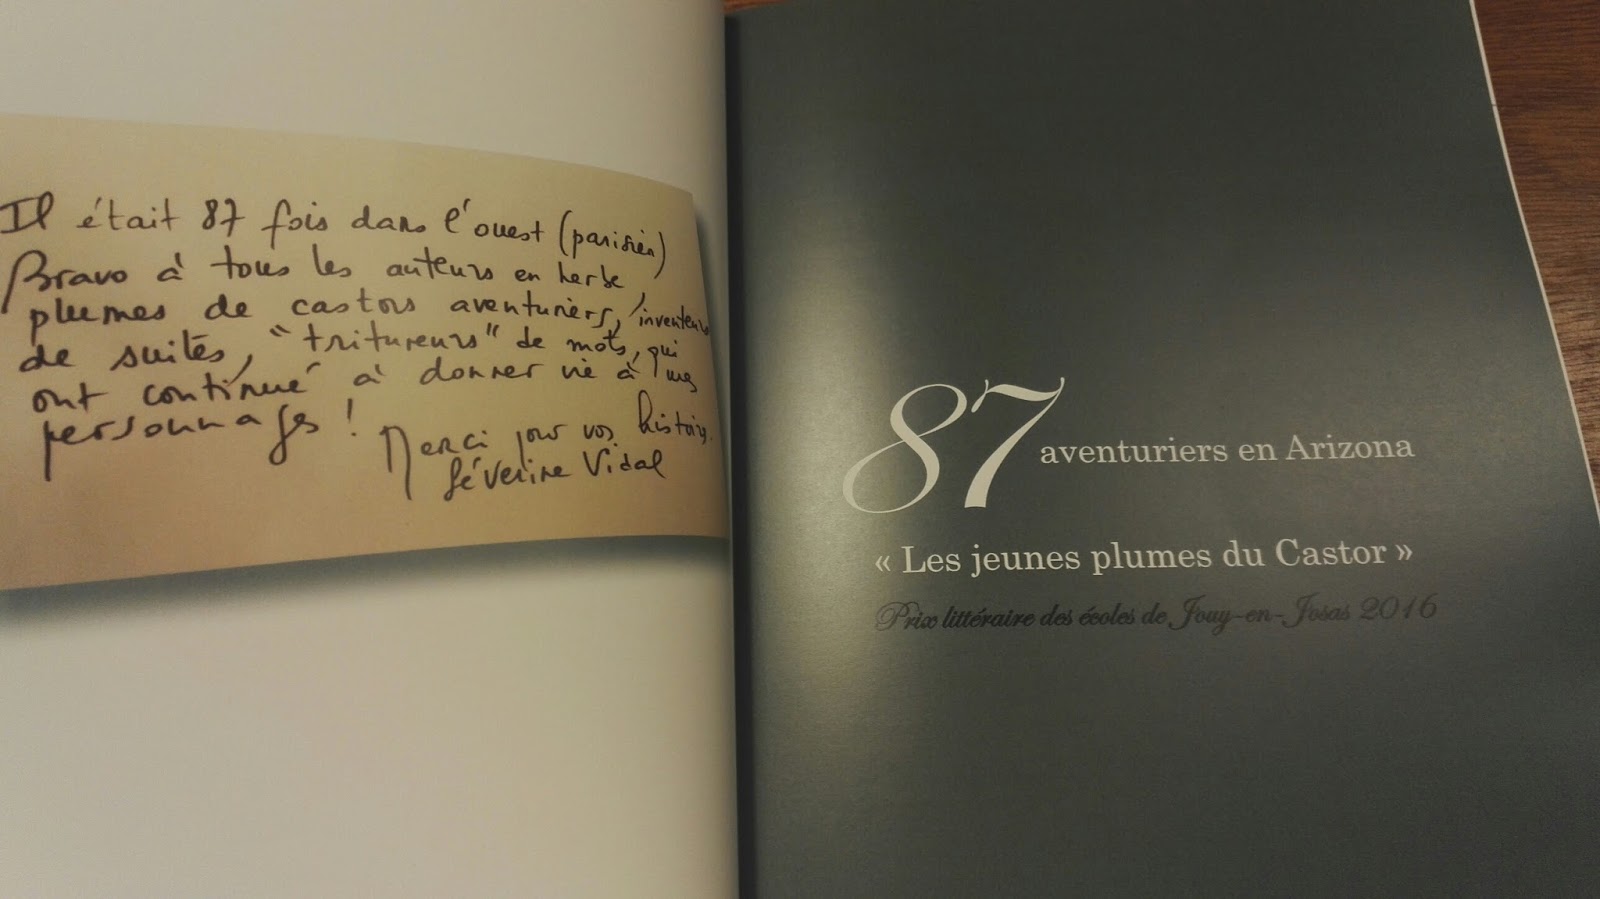 Il était 87 fois dans l'ouest (parisien)
Bravo à tous les auteurs en herbe
plumes de castors aventuriers, inventeurs
de suites, "tritureurs" de mots, qui
ont continué à donner vie à mes
personnages !
Merci pour vos histoires.
Séverine Vidal
87 aventuriers en Arizona
« Les jeunes plumes du Castor »
Prix littéraire des écoles de Jouy-en-Josas 2016